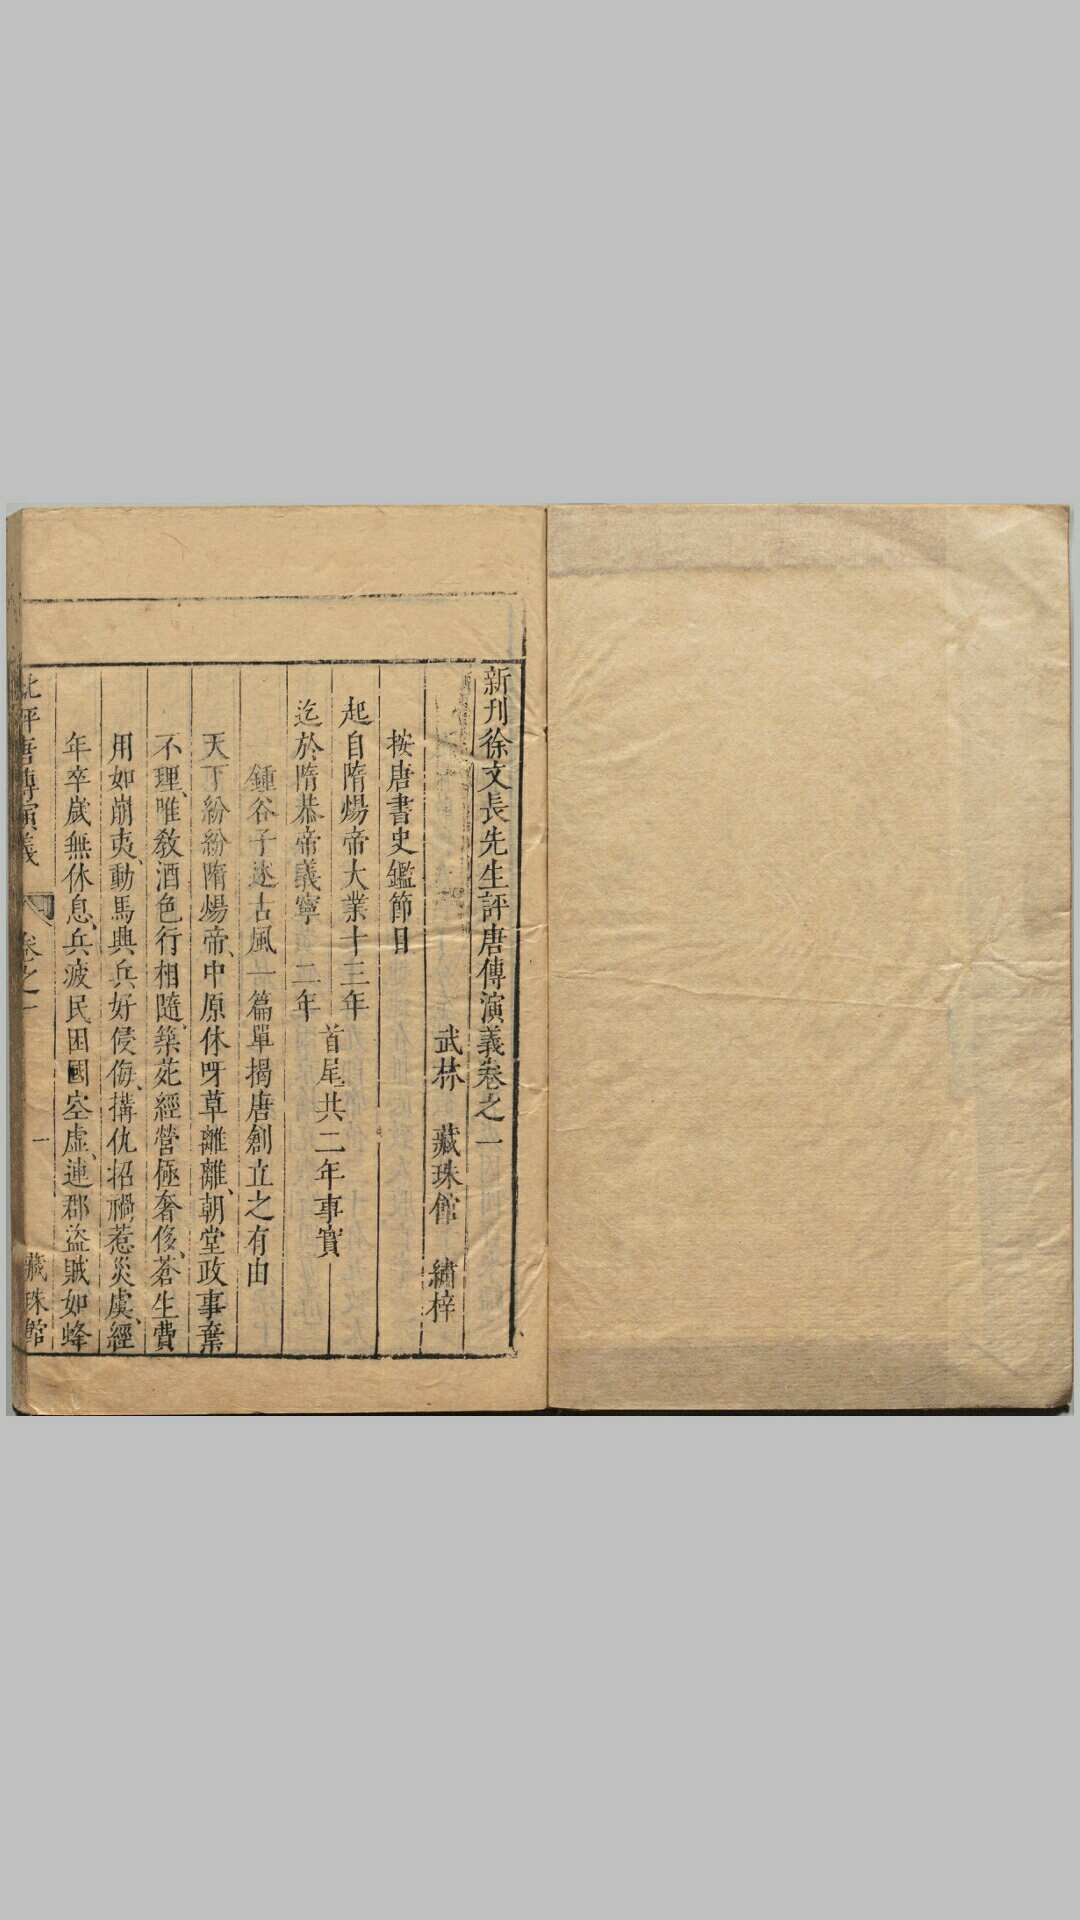 新刊徐文長先生評唐傳演義卷之一
武林 藏珠館 繡梓
按唐書史鑑節目
起自隋煬帝大業十三年
迄於隋恭帝義寧二年
首尾共二年事實
鍾谷子述古風一篇單揭唐創立之有由
天下紛紛隋煬帝、中原休呀草離離、朝堂政事棄
不理、唯敎酒色行相隨、築苑經營極奢侈、蒼生費
用如崩夷、動馬興兵好侵侮、搆仇招禍惹災虞、經
年卒歲無休息、兵疲民困國空虛、連郡盜賊如蜂
批評唐傳演義 卷之一 一 藏珠館